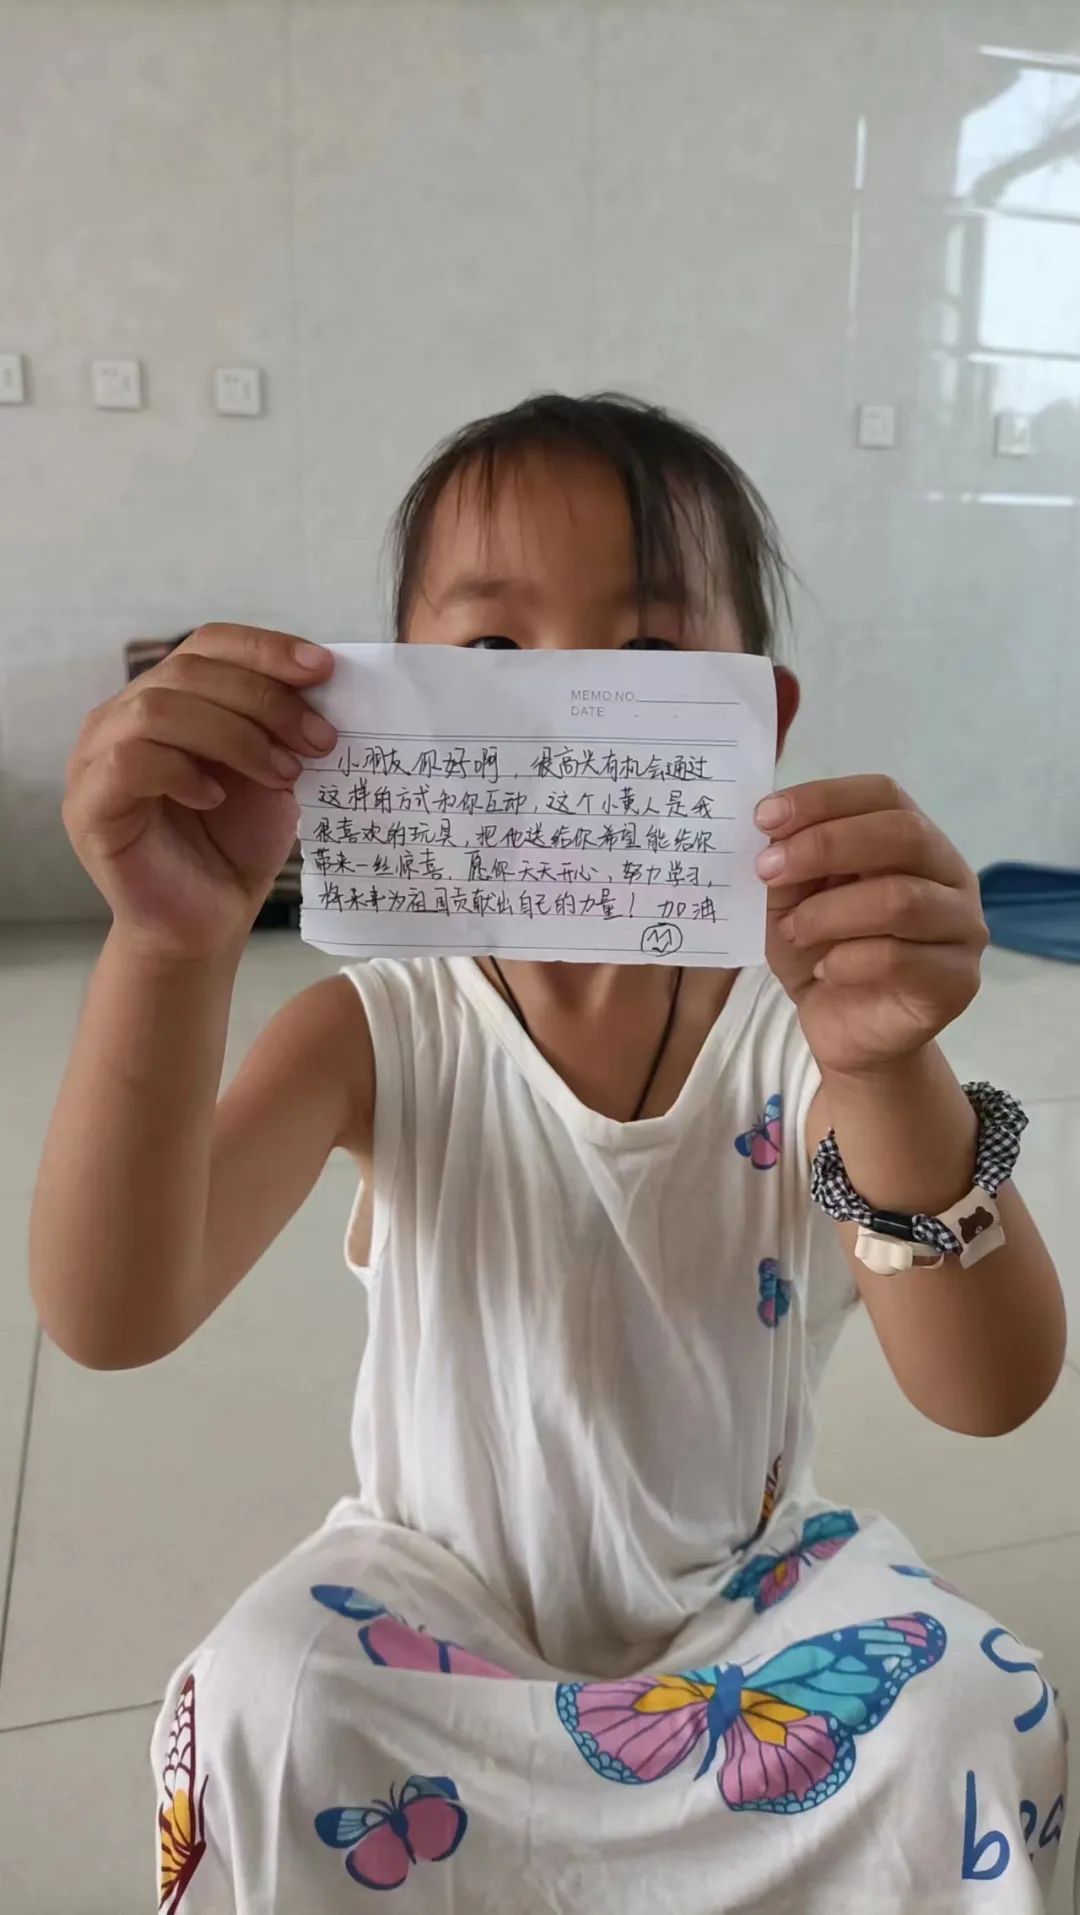 MEMO NO.
DATE
小朋友你好啊，很高兴有机会通过
这样的方式和你互动，这个小黄人是我
很喜欢的玩具，把他送给你希望能给你
带来一丝惊喜，愿你天天开心，努力学习，
将来为祖国贡献出自己的力量！加油
S
b